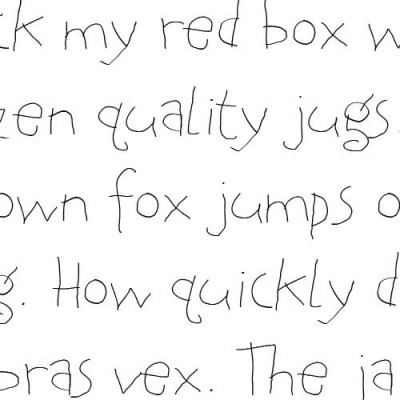 k my red box w
zen quality jugs.
own fox jumps o
g. How quickly d
bras vex. The ja